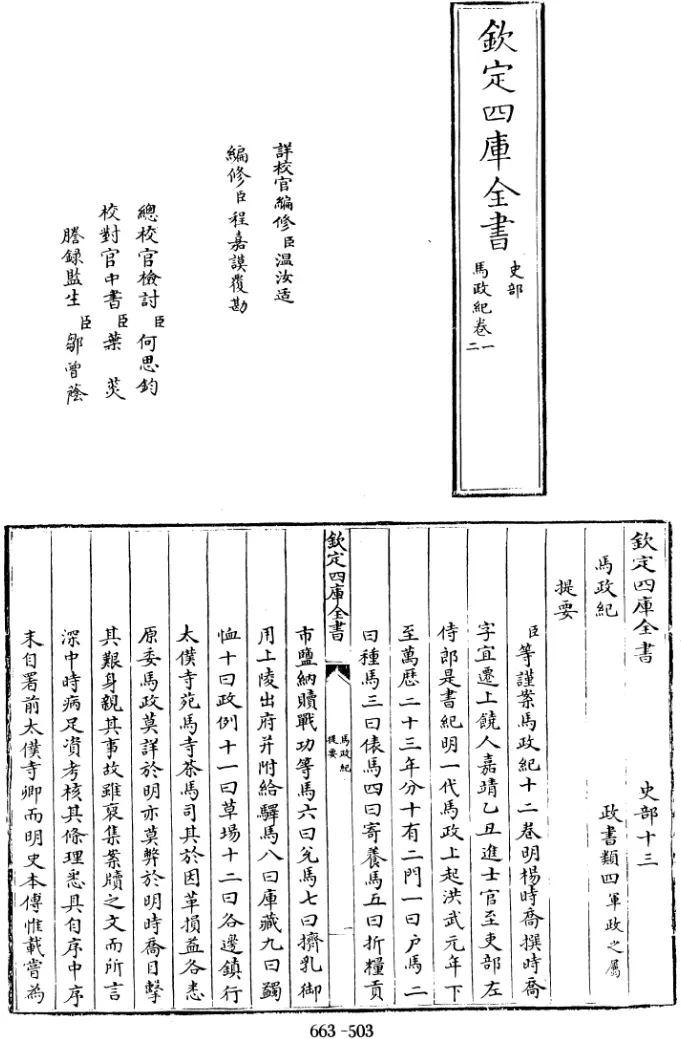 欽定四庫全書
史部
馬政紀卷一二
詳校官編修臣温汝适
編修臣程嘉謨覆勘
總校官檢討臣何思鈞
校對官中書臣葉菼
謄録監生臣鄒曾蔭
欽定四庫全書
史部十三
馬政紀
政書類四軍政之屬
提要
臣等謹案馬政紀十二卷明楊時喬撰時喬
字宜遷上饒人嘉靖乙丑進士官至吏部左
侍郎是書紀明一代馬政上起洪武元年下
至萬歴二十三年分十有二門一曰户馬二
曰種馬三曰俵馬四曰寄養馬五曰折糧貢
欽定四庫全書
馬政紀
提要
一
市鹽納贖戰功等馬六曰兊馬七曰擠乳御
用上陵出府并附給驛馬八曰庫藏九曰蠲
恤十曰政例十一曰草場十二曰各邊鎮行
太僕寺苑馬寺茶馬司其於因革損益各悉
原委馬政莫詳於明亦莫弊於明時喬目擊
其艱身親其事故雖裒集案牘之文而所言
深中時病足資考核其條理悉具自序中序
末自署前太僕寺卿而明史本傳惟載嘗為
663-503